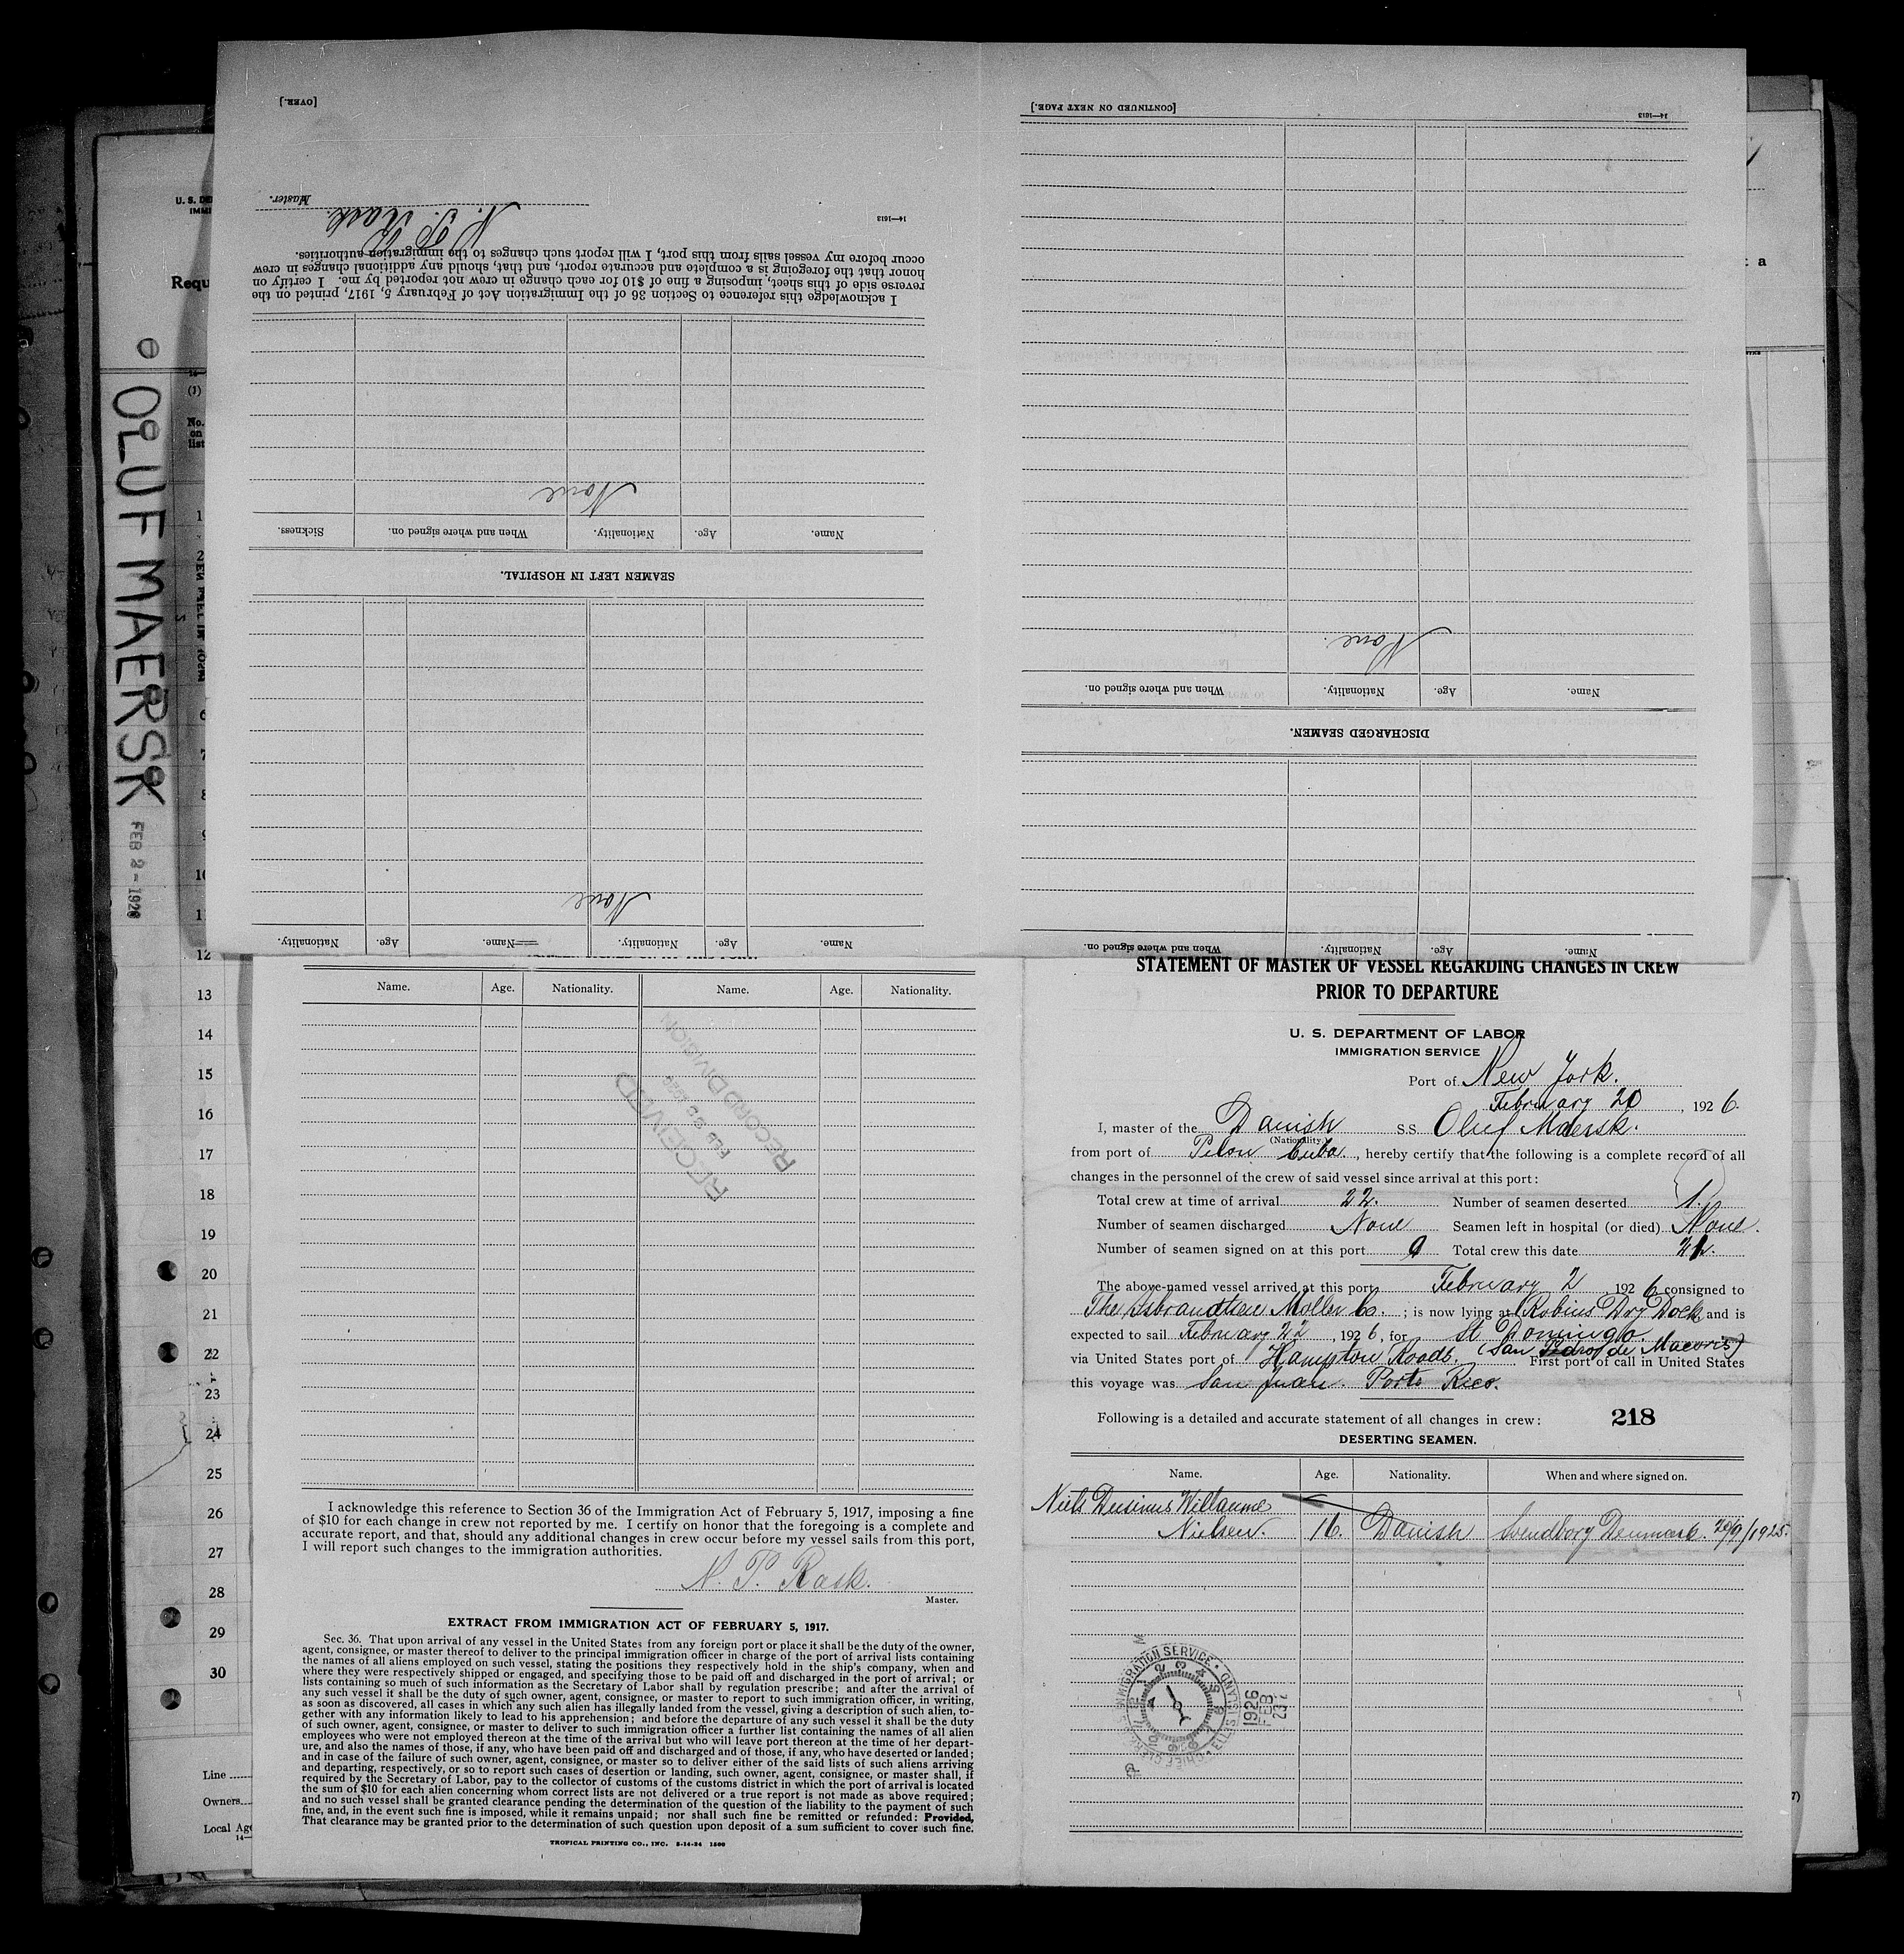 [OVER.]
Master.
N. P. Rask.
14—1613
I acknowledge this reference to Section 36 of the Immigration Act of February 5, 1917, printed on the
reverse side of this sheet, imposing a fine of $10 for each change in crew not reported by me. I certify on
honor that the foregoing is a complete and accurate report, and that, should any additional changes in crew
occur before my vessel sails from this port, I will report such changes to the immigration authorities.
None
Name. Age. Nationality. When and where signed on. Sickness.
SEAMEN LEFT IN HOSPITAL.
None
Name. Age. Nationality. Name. Age. Nationality.
[CONTINUED ON NEXT PAGE.]
14—1613
None.
Name. Age. Nationality. When and where signed on.
DISCHARGED SEAMEN.
Name. Age. Nationality. When and where signed on.
U. S. DE
IMMI
Requ
a
(1)
No.
on
list
OLUF MAERSK
FEB 2 - 1926
1
2
6
7
8
9
10
11
12
13
14
15
16
17
18
19
20
21
22
23
24
25
26
27
28
29
30
Line
Owners
Local Age
14—
Name. Age. Nationality. Name. Age. Nationality.
RECEIVED
FEB 23 1926
RECORD DIVISION
I acknowledge this reference to Section 36 of the Immigration Act of February 5, 1917, imposing a fine
of $10 for each change in crew not reported by me. I certify on honor that the foregoing is a complete and
accurate report, and that, should any additional changes in crew occur before my vessel sails from this port,
I will report such changes to the immigration authorities.
N. P. Rask.
Master.
EXTRACT FROM IMMIGRATION ACT OF FEBRUARY 5, 1917.
Sec. 36. That upon arrival of any vessel in the United States from any foreign port or place it shall be the duty of the owner,
agent, consignee, or master thereof to deliver to the principal immigration officer in charge of the port of arrival lists containing
the names of all aliens employed on such vessel, stating the positions they respectively hold in the ship's company, when and
where they were respectively shipped or engaged, and specifying those to be paid off and discharged in the port of arrival; or
lists containing so much of such information as the Secretary of Labor shall by regulation prescribe; and after the arrival of
any such vessel it shall be the duty of such owner, agent, consignee, or master to report to such immigration officer, in writing,
as soon as discovered, all cases in which any such alien has illegally landed from the vessel, giving a description of such alien, to-
gether with any information likely to lead to his apprehension; and before the departure of any such vessel it shall be the duty
of such owner, agent, consignee, or master to deliver to such immigration officer a further list containing the names of all alien
employees who were not employed thereon at the time of the arrival but who will leave port thereon at the time of her depart-
ure, and also the names of those, if any, who have been paid off and discharged and of those, if any, who have deserted or landed;
and in case of the failure of such owner, agent, consignee, or master so to deliver either of the said lists of such aliens arriving
and departing, respectively, or so to report such cases of desertion or landing, such owner, agent, consignee, or master, shall, if
required by the Secretary of Labor, pay to the collector of customs of the customs district in which the port of arrival is located
the sum of $10 for each alien concerning whom correct lists are not delivered or a true report is not made as above required;
and no such vessel shall be granted clearance pending the determination of the question of the liability to the payment of such
fine, and, in the event such fine is imposed, while it remains unpaid; nor shall such fine be remitted or refunded: Provided,
That clearance may be granted prior to the determination of such question upon deposit of a sum sufficient to cover such fine.
TROPICAL PRINTING CO., INC. 3-14-24 1500
STATEMENT OF MASTER OF VESSEL REGARDING CHANGES IN CREW
PRIOR TO DEPARTURE
U. S. DEPARTMENT OF LABOR
IMMIGRATION SERVICE
Port of New York.
February 20, 1926.
I, master of the Danish SS Oluf Maersk.
(Nationality)
from port of Pilon Cuba., hereby certify that the following is a complete record of all
changes in the personnel of the crew of said vessel since arrival at this port:
Total crew at time of arrival 22. Number of seamen deserted 1.
Number of seamen discharged None Seamen left in hospital (or died) None.
Number of seamen signed on at this port 0 Total crew this date 21.
The above-named vessel arrived at this port February 2 1926 consigned to
The Isbrandtsen Moller Co.; is now lying at Robins Dry Dock and is
expected to sail February 22, 1926, for St Domingo.
(San Pedro de Macoris)
via United States port of Hampton Roads. First port of call in United States
this voyage was San Juan. Porto Rico.
Following is a detailed and accurate statement of all changes in crew: 218
DESERTING SEAMEN.
Name. Age. Nationality. When and where signed on.
Niels Willaume
Nielsen. 16. Danish Svendborg Denmark. 29/9/1925.
IMMIGRATION SERVICE · ELLIS ISLAND · CHIEF CLERK
1926
FEB
23